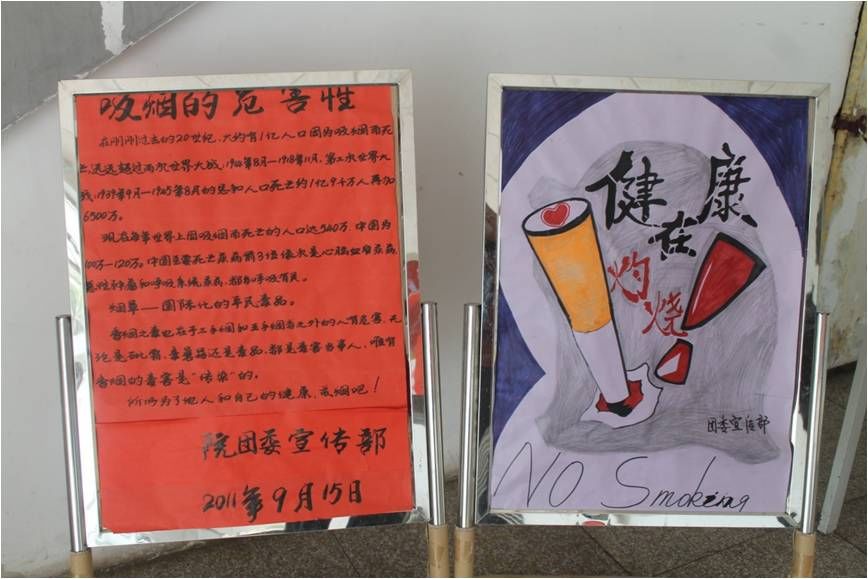 吸烟的危害性
在刚刚过去的20世纪,大约有1亿人口因为吸烟而死
亡,远远超过两次世界大战,1914年8月—1918年11月,第二次世界大
战,1939年9月—1945年8月的总和人口死亡约1亿9千万人再加
6500万。
现在每年世界上因吸烟而死亡的人口达540万,中国为
100万—120万。中国主要死亡疾病前3位依次是心脑血管疾病,
恶性肿瘤和呼吸系统疾病,都与呼吸有关。
烟草—国际化的平民毒品。
香烟之毒也在于二手烟和三手烟为之外的人有危害,无
论是砒霜,毒蘑菇还是毒品,都是毒害当事人,唯有
香烟的毒害是“传染”的。
所以为了他人和自己的健康,戒烟吧!
院团委宣传部
2011年9月15日
健康
在
灼烧
团委宣传部
NO Smoking